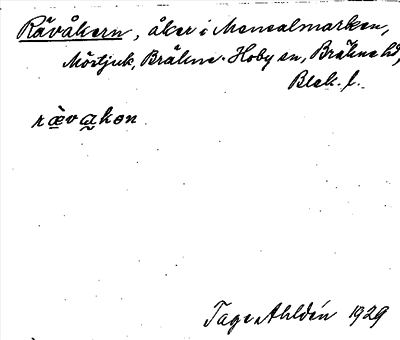 Rävåkern, åker i Mensalmarken,
Mörtjuk, Bräkne-Hoby sn, Bräkne hd,
Blek. l.
rævakən
Tage Ahldén 1929